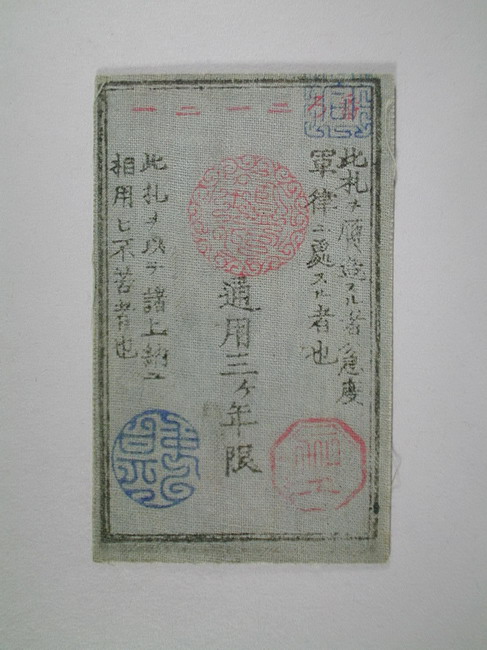 ろ二一二一
此札ヲ贋造スル者ハ急度
軍律ニ處スル者也
通用三ケ年限
此札ヲ以テ諸上納ニ
相用ヒ不苦者也